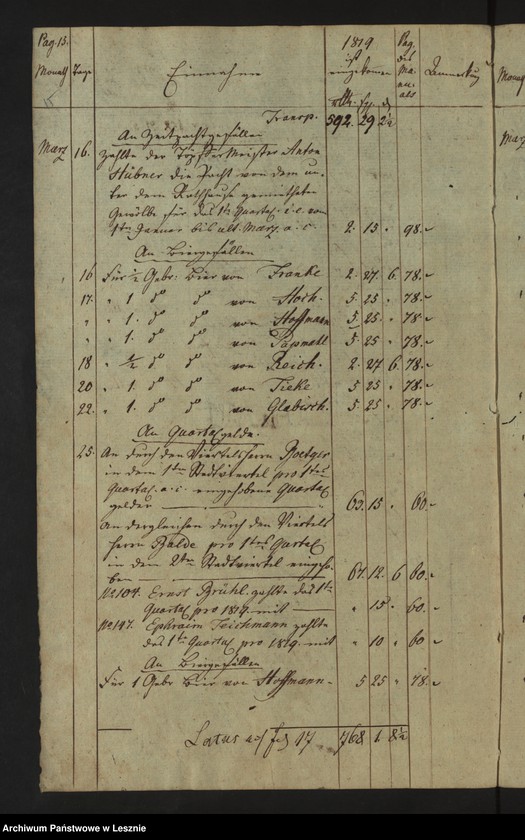 Pag. 15.
Monath Tage Einnahme 1819 ist eingekommen Pag. des Manuals Anmerkung
Rtlr. Sgr. d.
Transp. 592. 29 2½
An Zeitpachtgefällen
März 16. Zahlte der Töpfer Meister Anton
Hübner die Pacht von dem un-
ter dem Rathhause gemietheten
Gewölbe für das 1te Quartal a. c. vom
1ten Januar bis ult. März a. c. 2. 15 " 98.
An Biergefällen
16 Für ½ Gebr: Bier von Franke 2. 27 6. 78.
17. " 1. do do von Hoch. 5. 25 " 78.
" " 1. do do von Hoffmann 5. 25. " 78.
" " 1. do do von 5. 25 " 78.
18 " ½ do do von Reich. 2. 27 6. 78.
20 " 1. do do von Tieke 5. 25 " 78.
22. " 1. do do von Glabisch. 5. 25 " 78.
An Quartalgelde.
25. An durch den Viertelsherrn Boetger
in dem 1ten Stadtviertel pro 1tes
Quartal a. c. eingehobene Quartal
gelder 63. 15 " 60.
An dergleichen durch den Viertels
herrn Balde pro 1tes Quartal
in dem 2ten Stadtviertel eingeho-
ben 67. 12. 6 60.
No 104. Ernst Brühl. zahlte das 1te
Quartal pro 1819. mit " 15 " 60.
No 147. Ephraim Teichmann zahlte
das 1te Quartal pro 1819. mit " 10 " 60
An Biergefällen
Für 1 Gebr Bier von Hoffmann. 5 25 " 78.
Latus auf fol 17 768 1. 8½
Monath
März
Archiwum Państwowe w Lesznie